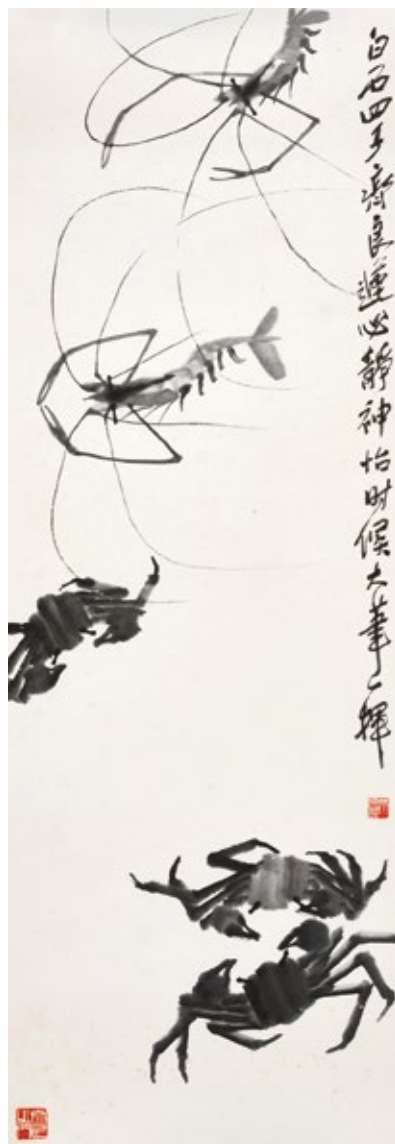 白石四子齊良遲心靜神怡時候大筆一揮